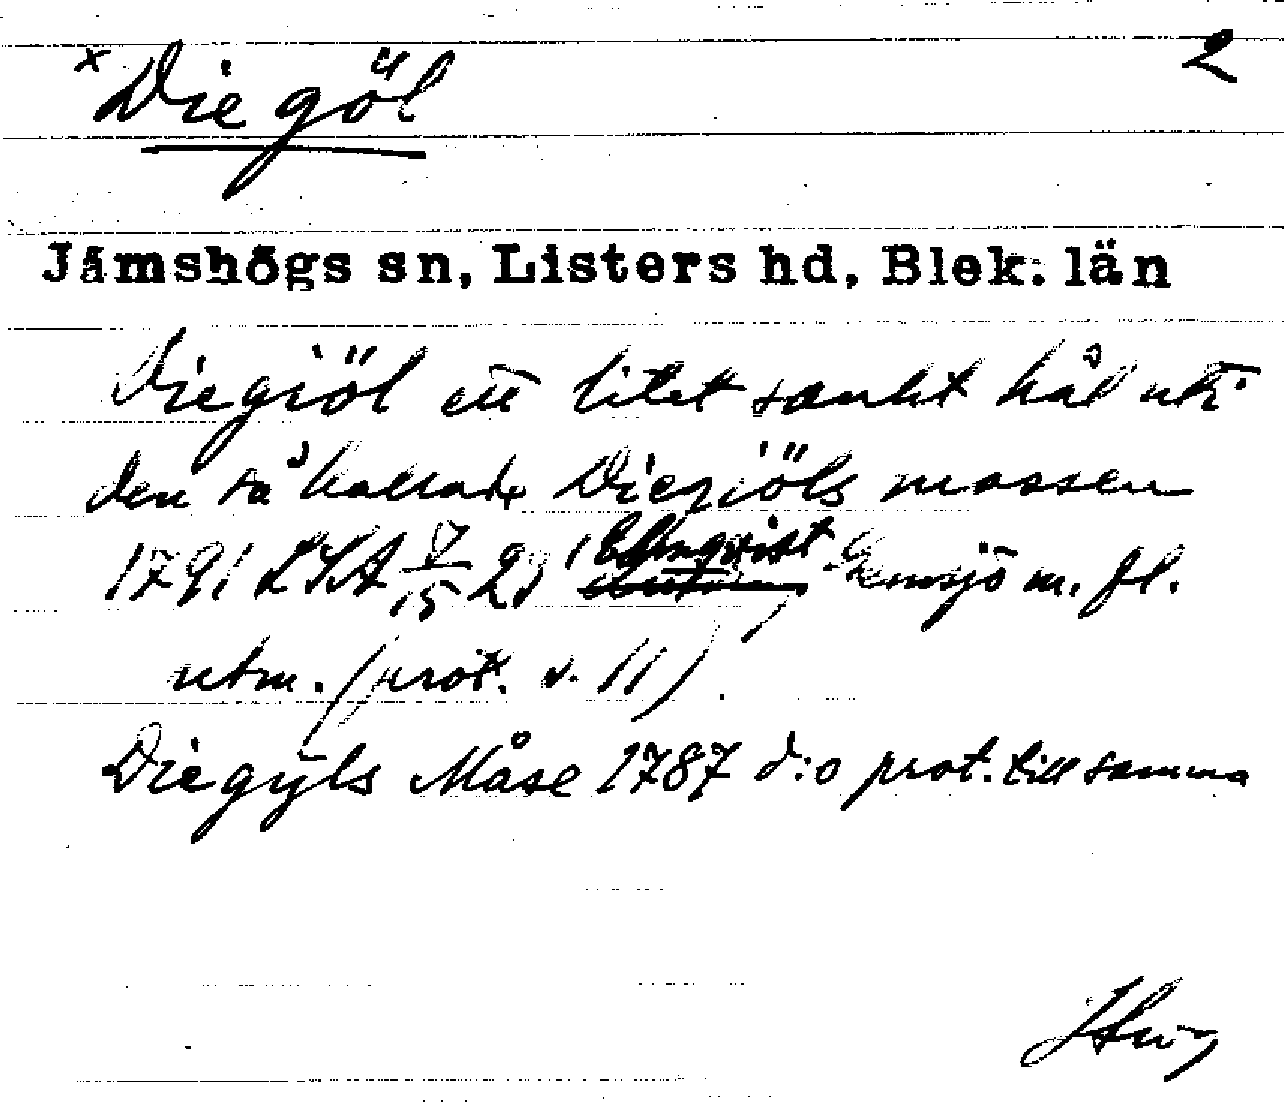 x Diegöl 2
Jämshögs sn, Listers hd, Blek. län
Diegiöl ett litet sankt hål uti
den så kallade Diegiöls mossen
1791 LSA 7/15 28 m. fl.
utm. (prot. s. 11).
Diegyls Måse 1787 d:o prot. till samma